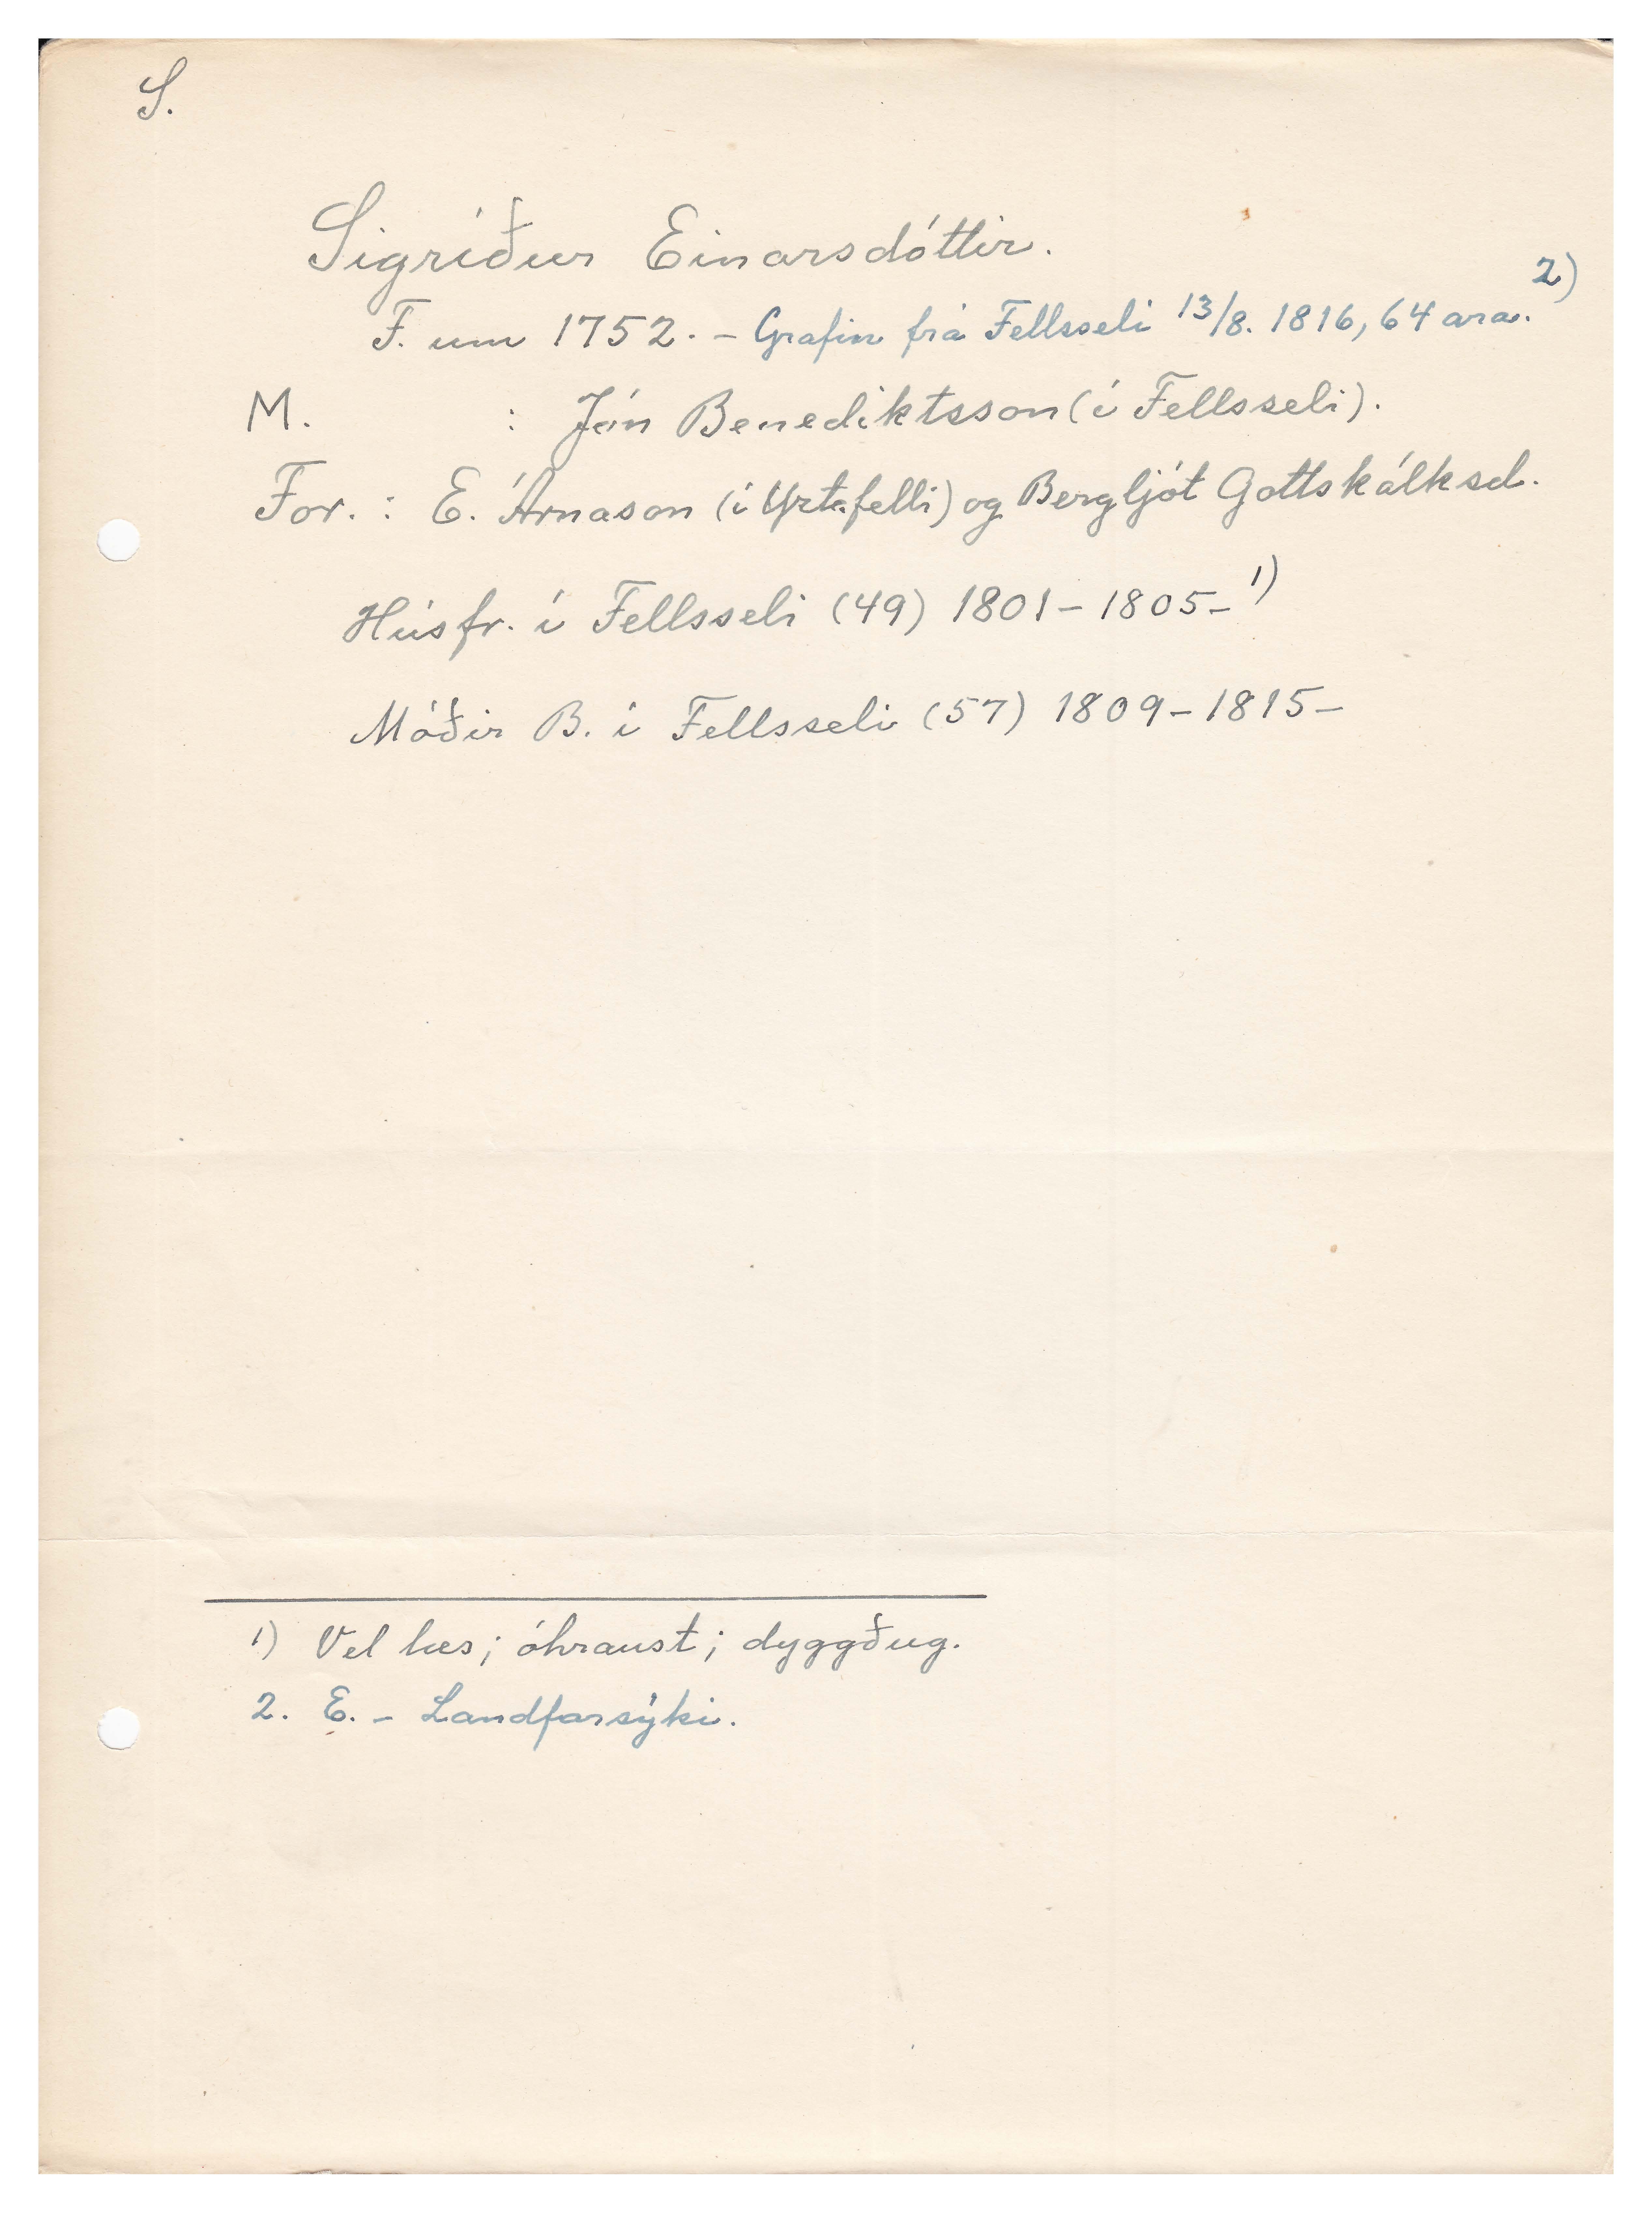 S.
Sigríður Einarsdóttir.
F. um 1752. - Grafin frá Fellsseli 13/8. 1816, 64 ara. 2)
M. : Jón Benediktsson (í Fellsseli).
For. : E. Árnason (í Yztafelli) og Bergljót Gottskálksd.
Húsfr. í Fellsseli (49) 1801 - 1805 - 1)
Móðir B. í Fellsseli (57) 1809 - 1815 -
1) Vel læs; óhraust; dyggðug.
2. E. - Landfarsýki.